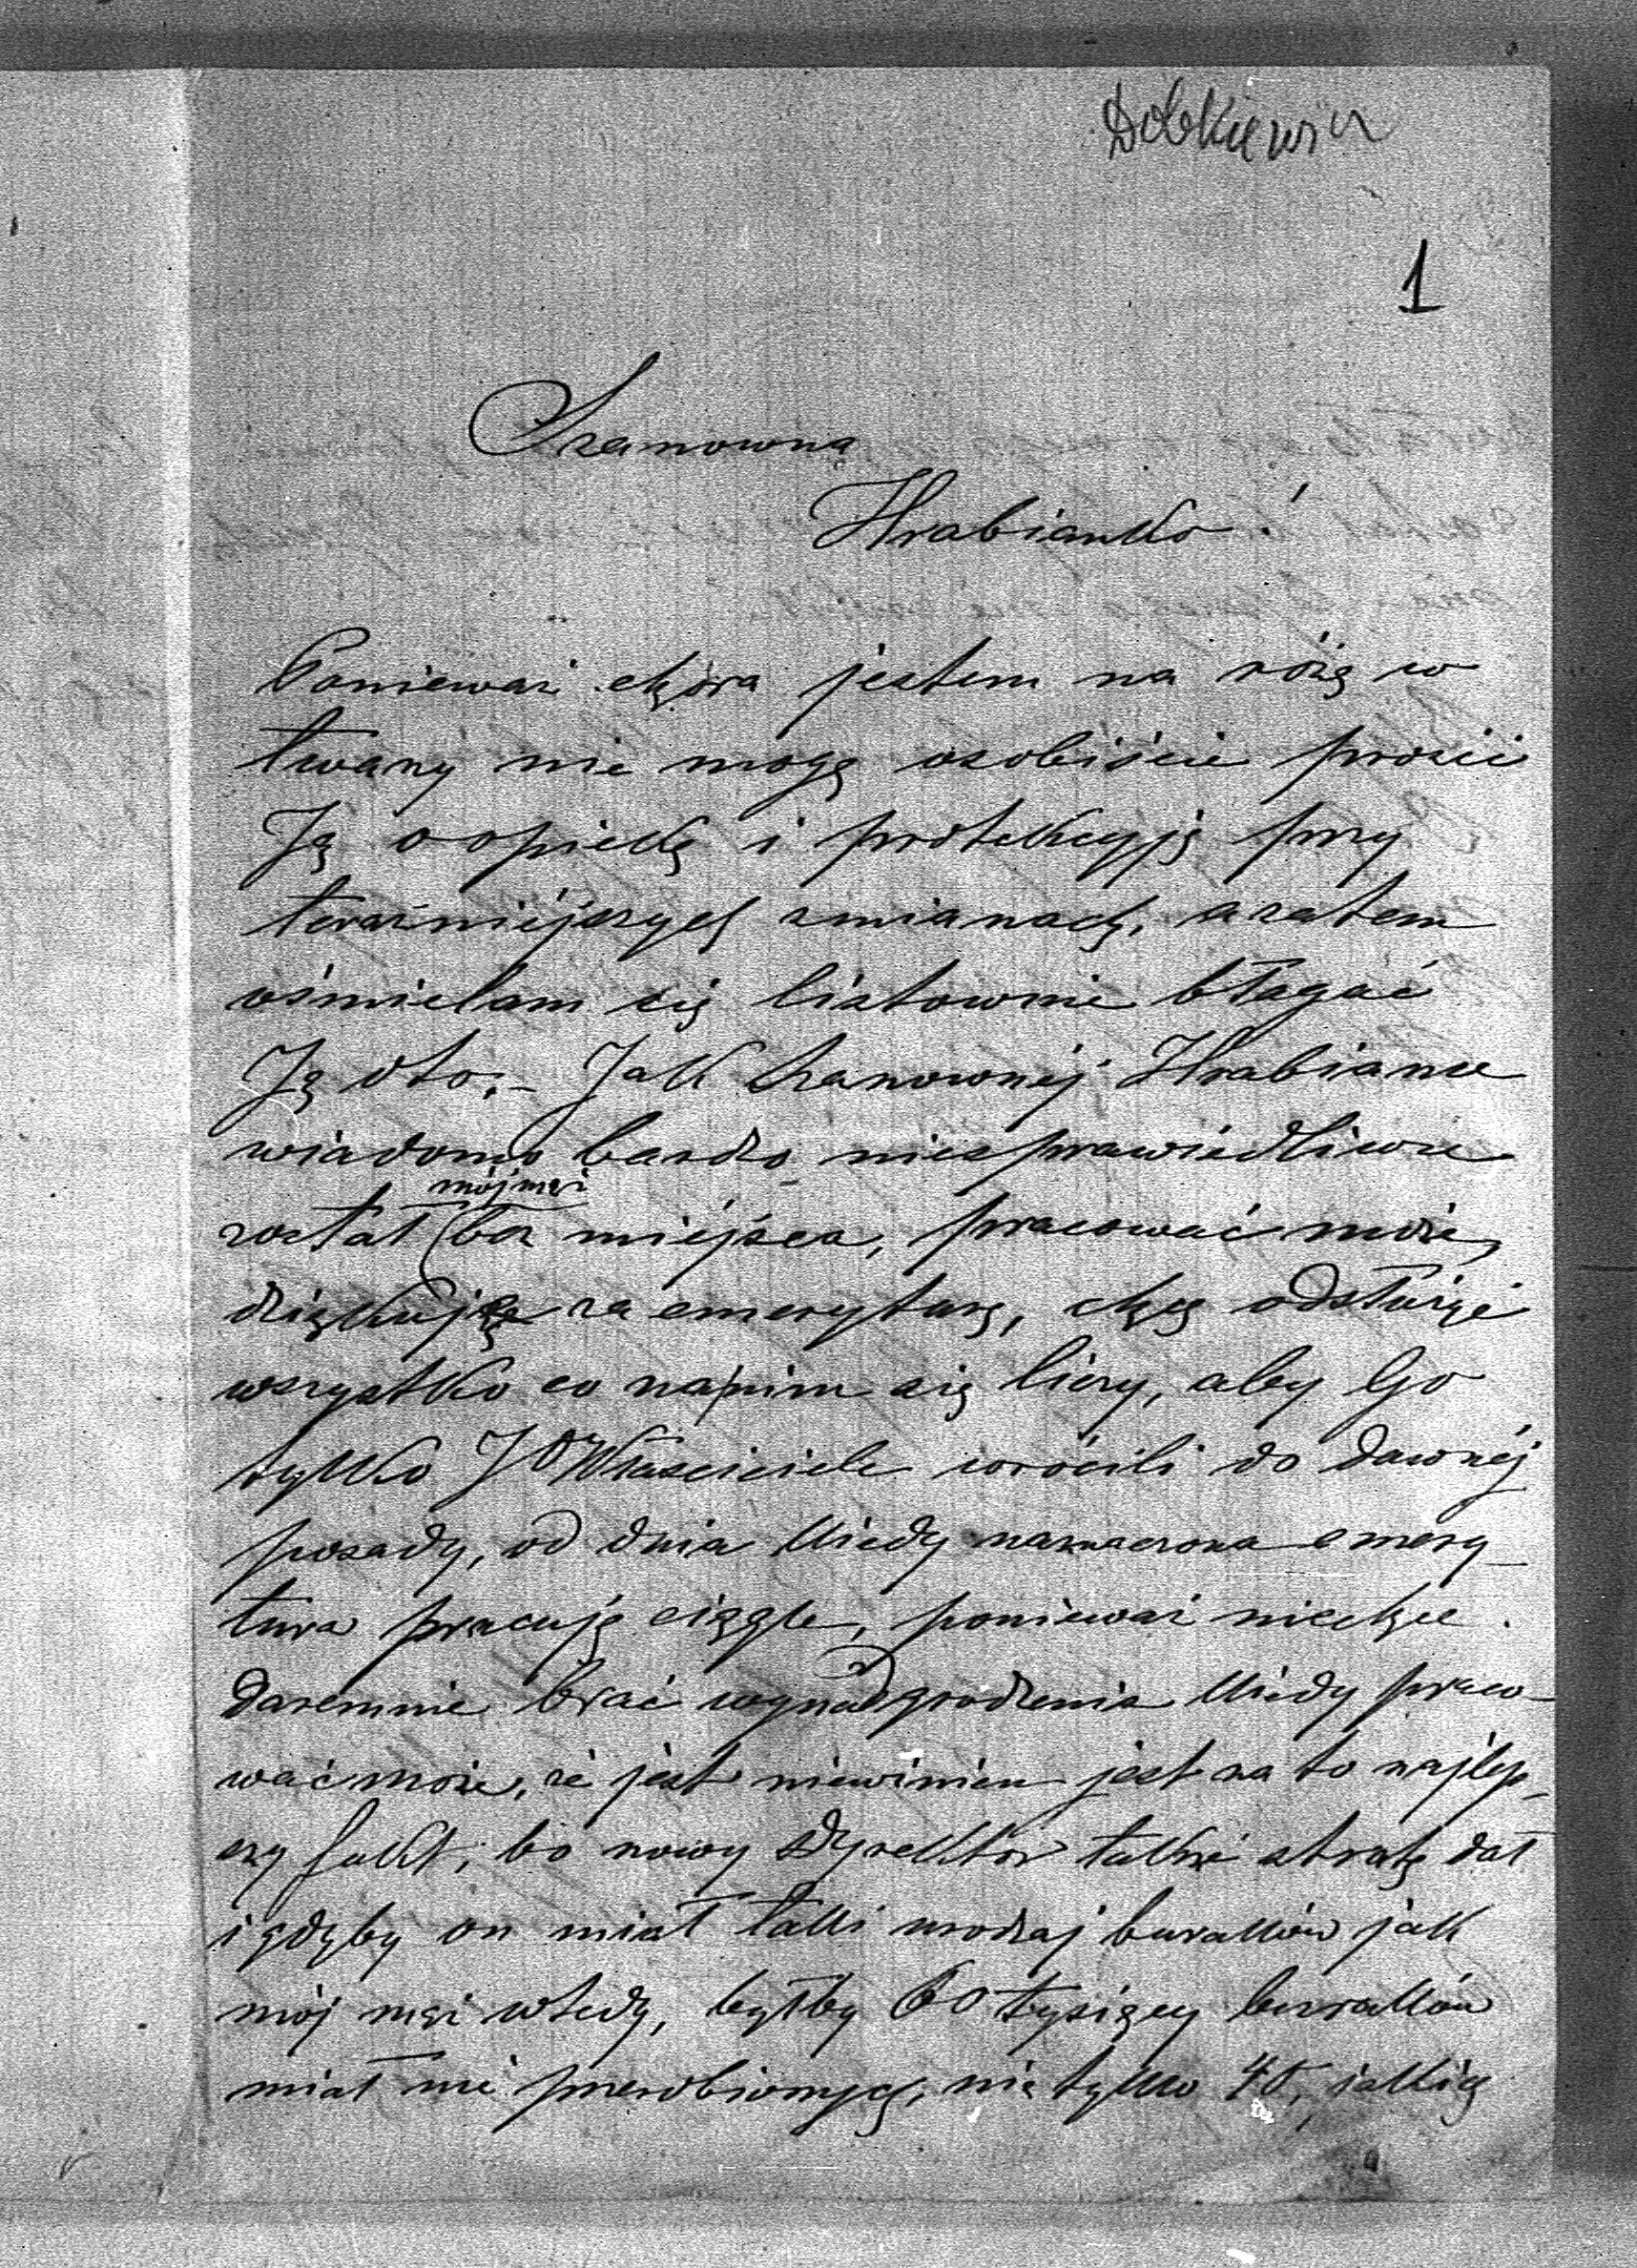 1
Szanowna
Hrabianko!
Ponieważ chora jestem na różę w
twarzy nie mogę osobiście prosić
Ją o opiekę i protekcyję przy
teraźniejszych zmianach, a zatem
ośmielam się listownie błagać
Ją oto; – Jak Szanownej Hrabiance
wiadomo bardzo niesprawiedliwie
mój mąż
został bez miejsca, pracować może,
dziękuję za emeryturę, chcę odsłużyć
wszystko co na nim się liczy, aby Go
tylko JWWłaściciele wrócili do dawnéj
posady, od dnia kiedy naznaczona emery-
tura pracuję ciągle, ponieważ niechce
daremnie brać wynadgrodzenia kiedy praco-
wać może, że jest niewinien jest na to najlep-
szy fakt, bo nowy dyrektor także stratę dał
i gdyby on miał taki urodzaj buraków jak
mój mąż wtedy, byłby 60 tysięcy buraków
miał nie przerobionych, nie tylko 40, jakich